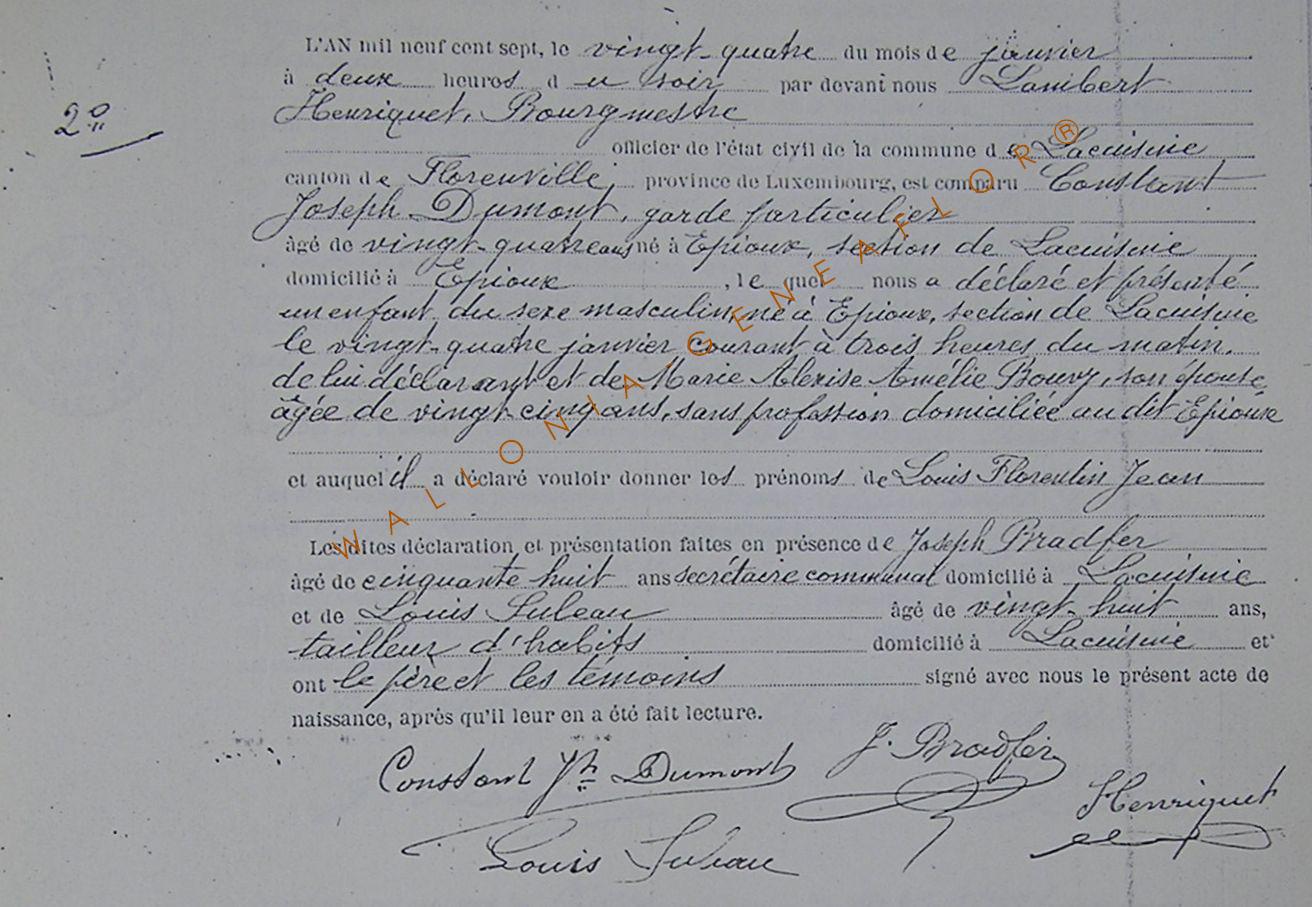 L'AN mil neuf cent sept, le vingt-quatre du mois de janvier
à deux heures du soir par devant nous Lambert
Henriquet, Bourgmestre
2º
officier de l'état civil de la commune de Lacuisine
canton de Florenville, province de Luxembourg, est comparu Constant
Joseph Dumont, garde particulier
âgé de vingt-quatre ans né à Epioux, section de Lacuisine
domicilié à Epioux, le quel nous a déclaré et présenté
un enfant du sexe masculin, né à Epioux, section de Lacuisine
le vingt-quatre janvier courant à trois heures du matin,
de lui déclarant et de Marie Alexise Amélie Bouvy, son épouse
âgée de vingt-cinq ans, sans profession domiciliée au dit Epioux
et auquel il a déclaré vouloir donner les prénoms de Louis Florentin Jean
Les dites déclaration et présentation faites en présence de Joseph Bradfer
âgé de cinquante huit ans secrétaire communal domicilié à Lacuisine
et de Louis Suleau âgé de vingt-huit ans,
tailleur d'habits domicilié à Lacuisine et
ont le père et les témoins signé avec nous le présent acte de
naissance, après qu'il leur en a été fait lecture.
Constant Jh Dumont J. Bradfer
Henriquet
Louis Suleau
WALLONIA.GENEAFLOR®